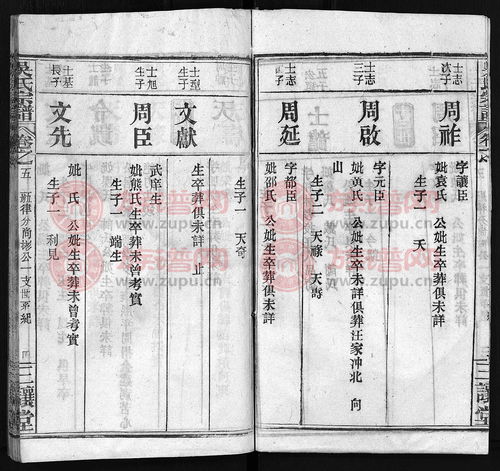 士志
次子
周祚
字讓臣
妣袁氏 公妣生卒葬俱未詳
生子一 天
士志
三子
周啟
字元臣
妣黃氏 公妣生卒葬未詳俱葬汪家沖北 向
山
生子二 天祿 天壽
周延
字都臣
妣邵氏 公妣生卒葬俱未詳
生子一 天奇
生子
文獻
生卒葬俱未詳 止
士旭
生子
周臣
武庠生
妣熊氏生卒葬未曾考實
生子一 端生
士基
長子
文先
妣 氏 公妣生卒葬未曾考實
生子一 利見
吳氏宗譜
卷之五
三讓堂
三讓堂
族譜网
www.zupu.cn
族譜网
www.zupu.cn